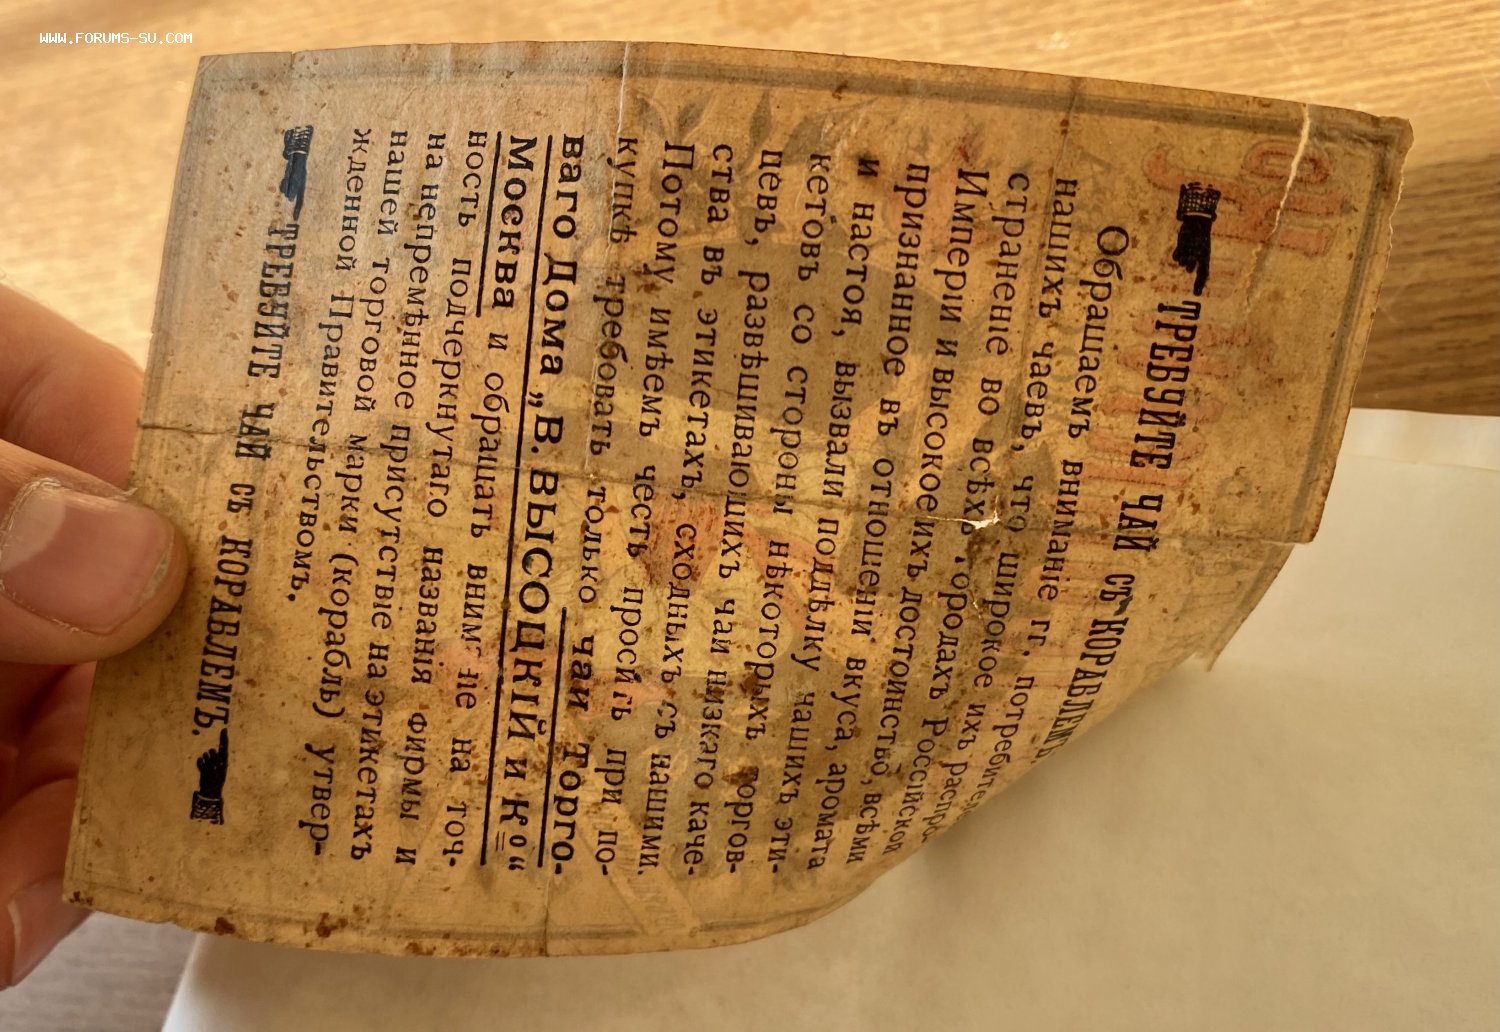 WWW.FORUMS-SU.COM
ТРЕБУЙТЕ ЧАЙ СЪ КОРАБЛЕМЪ
Обращаемъ вниманіе гг. потребител
нашихъ чаевъ, что широкое ихъ распро
страненіе во всѣхъ городахъ Россійской
Имперіи и высокое ихъ достоинство, всѣми
признанное въ отношеніи вкуса, аромата
и настоя, вызвали поддѣлку нашихъ эти-
кетовъ со стороны нѣкоторыхъ торгов-
цевъ, развѣшивающихъ чаи низкаго каче-
ства въ этикетахъ, сходныхъ съ нашими.
Потому имѣемъ честь просить при по-
купкѣ требовать только чаи торго-
ваго Дома „В. ВЫСОЦКІЙ и Кº“
Москва и обращать вниманіе на точ-
ность подчеркнутаго названія фирмы и
на непремѣнное присутствіе на этикетахъ
нашей торговой марки (корабль) утвер-
жденной Правительствомъ.
ТРЕБУЙТЕ ЧАЙ СЪ КОРАБЛЕМЪ.